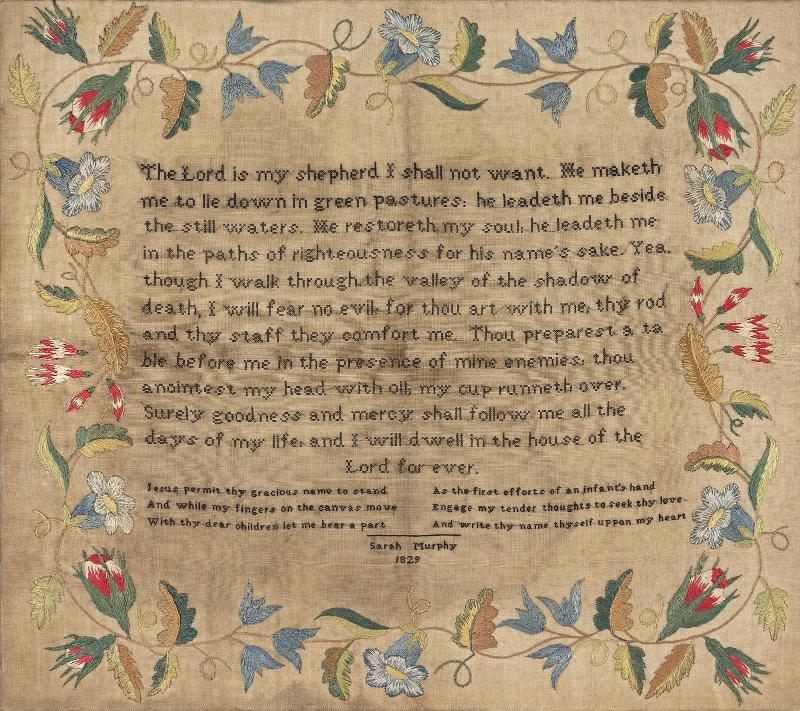 The Lord is my shepherd I shall not want. He maketh
me to lie down in green pastures: he leadeth me beside
the still waters. He restoreth my soul: he leadeth me
in the paths of righteousness for his name's sake. Yea,
though I walk through the valley of the shadow of
death, I will fear no evil: for thou art with me, thy rod
and thy staff they comfort me. Thou preparest a ta
ble before me in the presence of mine enemies: thou
anointest my head with oil; my cup runneth over.
Surely goodness and mercy shall follow me all the
days of my life: and I will dwell in the house of the
Lord for ever.
Jesus permit thy gracious name to stand
And while my fingers on the canvas move
With thy dear children let me bear a part
As the first efforts of an infant's hand
Engage my tender thoughts to seek thy love
And write thy name thyself uppon my heart
Sarah Murphy
1829